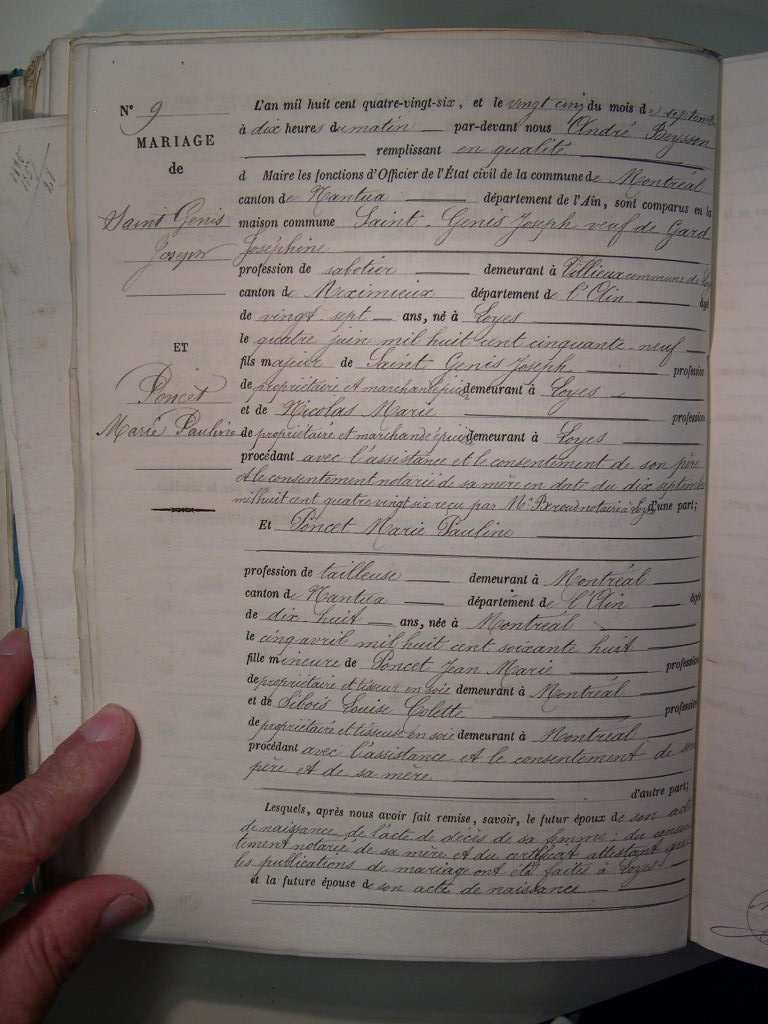 N° 9
MARIAGE
de
Saint Genis
Joseph
ET
Poncet
Marie Pauline
L'an mil huit cent quatre-vingt-six, et le vingt cinq du mois de septembre
à dix heures du matin par-devant nous André Beysson
remplissant en qualité
d Maire les fonctions d'Officier de l'État civil de la commune de Montréal
canton de Nantua département de l'Ain, sont comparus en la
maison commune Saint-Genis Joseph veuf de Gard
Joséphine
profession de sabotier demeurant à Villieux commune de Loyes
canton de Meximieux département de l'Ain âgé
de vingt sept ans, né à Loyes
le quatre juin mil huit cent cinquante-neuf
fils majeur de Saint Genis Joseph profession
de propriétaire et marchand épicier demeurant à Loyes
et de Nicolas Marie profession
de propriétaire et marchande épicière demeurant à Loyes
procédant avec l'assistance et le consentement de son père
et le consentement notarié de sa mère en date du dix septembre
mil huit cent quatre vingt six reçu par Me notaire à Loyes d'une part;
Et Poncet Marie Pauline
profession de tailleuse demeurant à Montréal
canton de Nantua département de l'Ain âgée
de dix-huit ans, née à Montréal
le cinq avril mil huit cent soixante huit
fille mineure de Poncet Jean Marie profession
de propriétaire et tisseur en soie demeurant à Montréal
et de Louise Colette profession
de propriétaire et tisseuse en soie demeurant à Montréal
procédant avec l'assistance et le consentement de son
père et de sa mère
d'autre part;
Lesquels, après nous avoir fait remise, savoir, le futur époux de son acte
de naissance, de l'acte de décès de sa femme; du consen-
tement notarié de sa mère et du certificat attestant que
les publications de mariage ont été faites à Loyes
et la future épouse de son acte de naissance